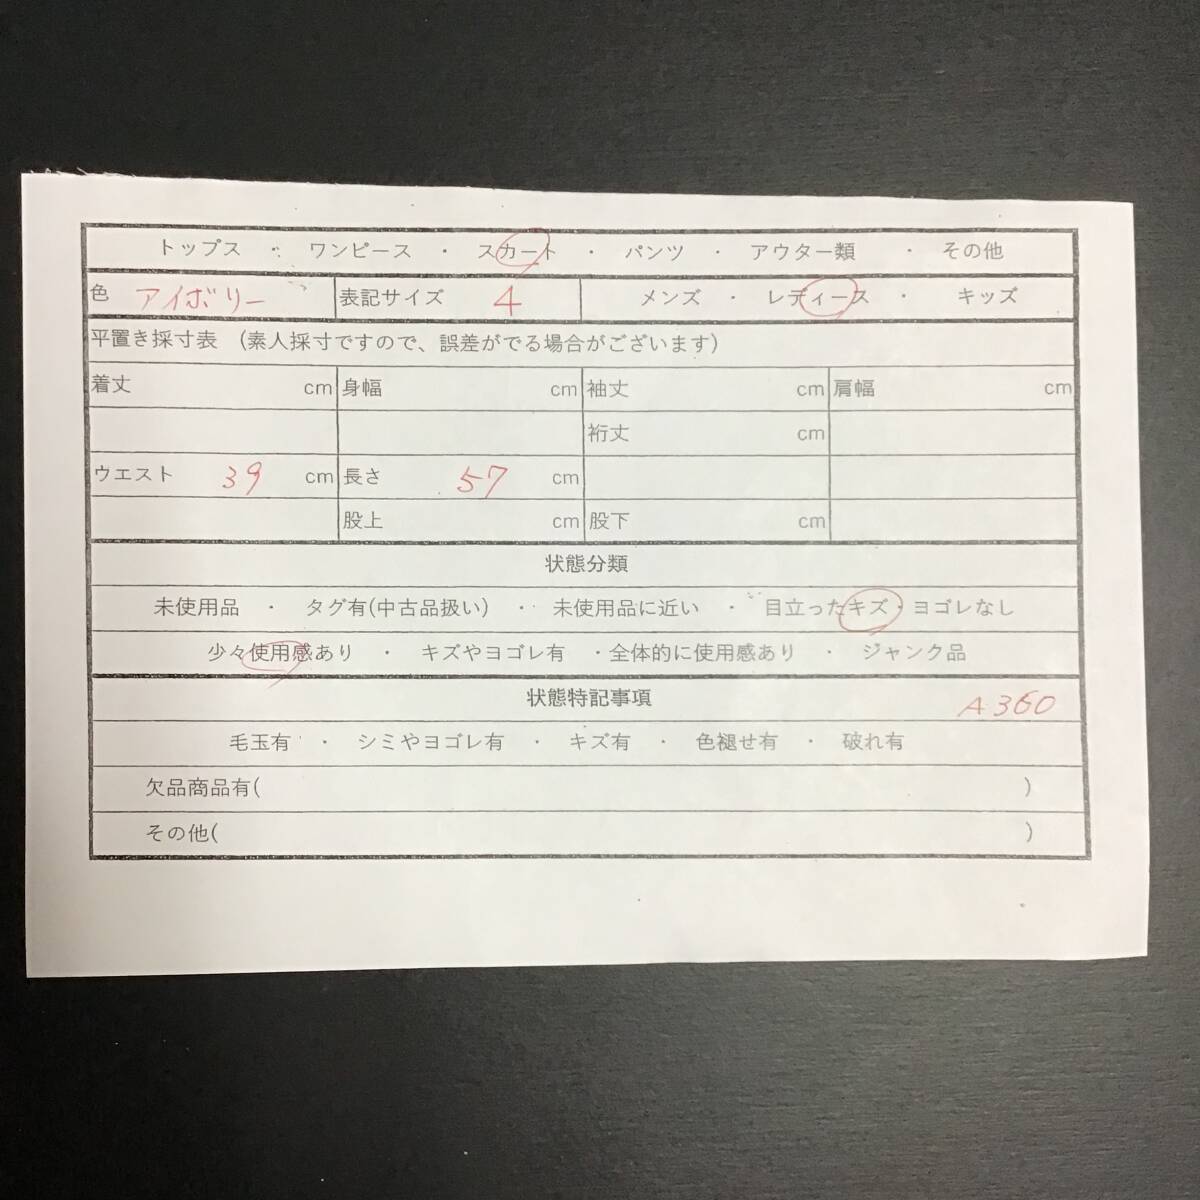 トップス ・ ワンピース ・ スカート ・ パンツ ・ アウター類 ・ その他
色 アイボリー 表記サイズ 4 メンズ ・ レディース ・ キッズ
平置き採寸表 (素人採寸ですので、誤差がでる場合がございます)
着丈 cm 身幅 cm 袖丈 cm 肩幅 cm
裄丈 cm
ウエスト 39 cm 長さ 57 cm
股上 cm 股下 cm
状態分類
未使用品 ・ タグ有(中古品扱い) ・ 未使用品に近い ・ 目立ったキズ・ヨゴレなし
少々使用感あり ・ キズやヨゴレ有 ・全体的に使用感あり ・ ジャンク品
状態特記事項 A360
毛玉有 ・ シミやヨゴレ有 ・ キズ有 ・ 色褪せ有 ・ 破れ有
欠品商品有( )
その他( )